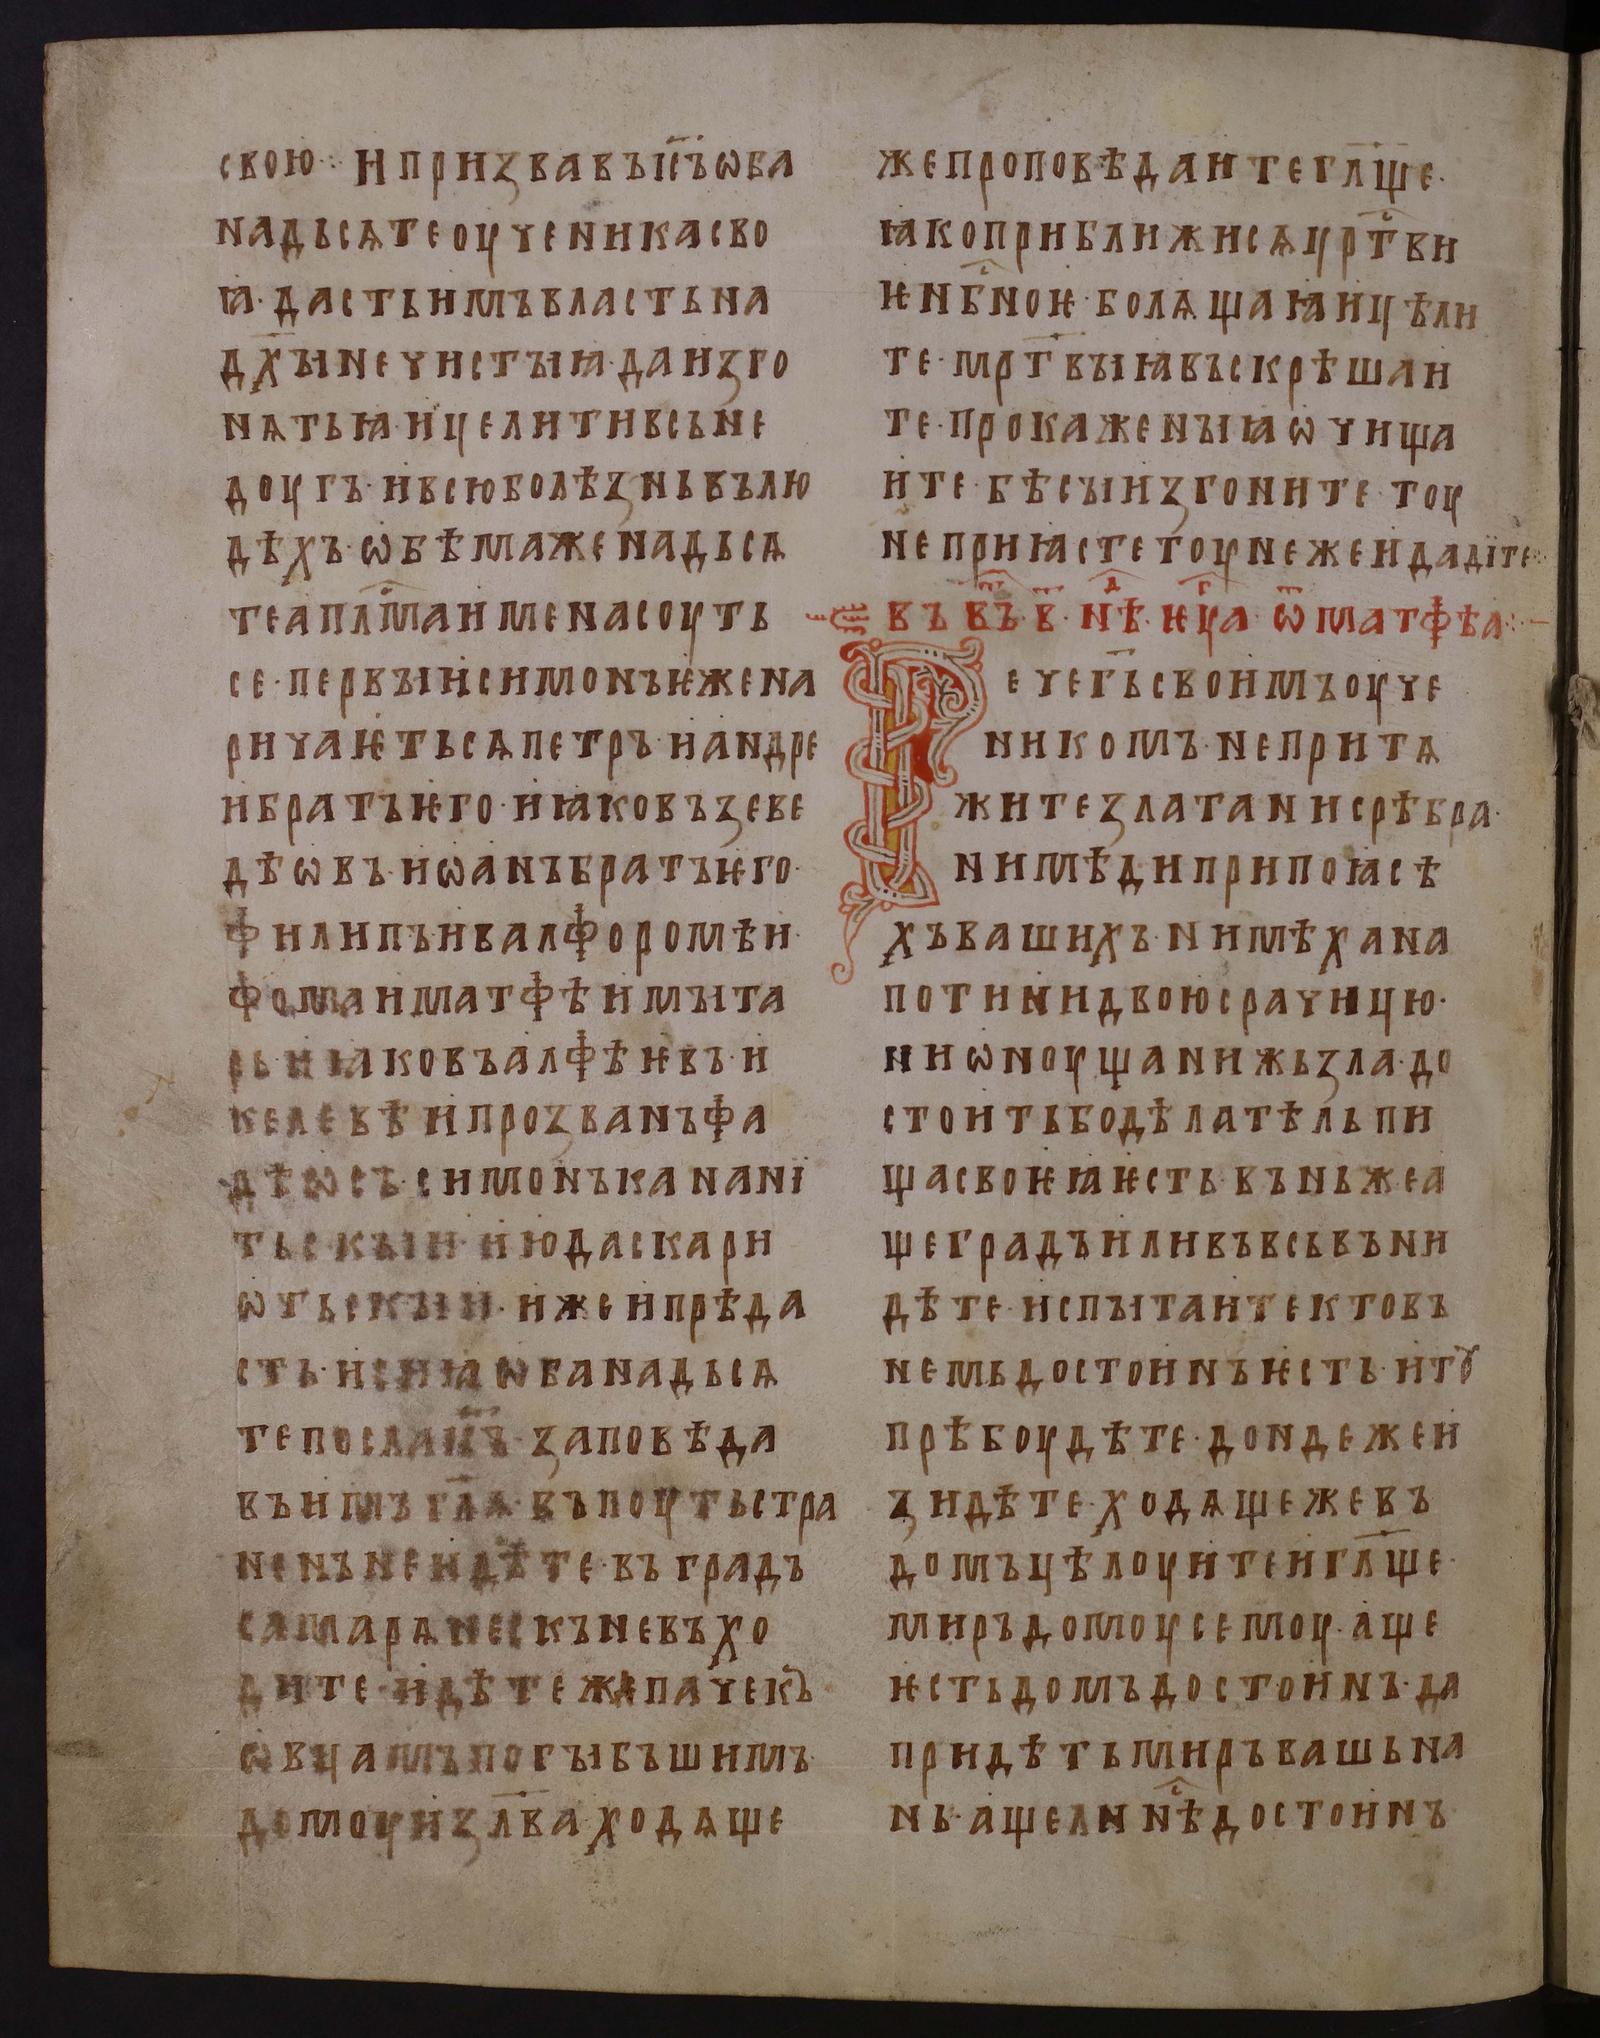 свою·:· И призвавъ іі҃съ ѡба
надьсѧте оученика сво
ꙗ· дасть имъ власть на
дх҃ы нечистыꙗ· да изго
нѧть ꙗ· и целити всь не
доугъ· и всю болѣзнь въ лю
дѣхъ· ѡбѣмаже надьсѧ
те апл҃ма имена соуть
се· первыи симонъ ѥже на
ричаѥтьсѧ петръ· и андре
и братъ ѥго· иꙗковъ зеве
дѣѡвъ· и иѡанъ братъ ѥго·
филипъ и валфоромѣи·
фома и матфѣи мыта
рь· иꙗковъ алфѣѥвъ· и
келевѣи прозванъ фа
дѣѡсъ· симонъ кананї
тьскыи· и июда скари
ѡтьскыи· иже и прѣда
сть· и сиꙗ ѡба надьсѧ
те посла іс҃ъ· заповѣда
въ имъ гл҃ѧ· въ поуть стра
ненъ не идѣте· въ градъ
самарѧнескъ не въхо
дите· идѣте же паче къ
ѡвцамъ погыбъшимъ·
домоу из҃лва· ходѧще
же проповѣдаите гл҃ще·
ꙗко приближисѧ црт҃ви
ѥ нб҃ноѥ· болѧщаꙗ ицѣли
те· мрт҃выꙗ въскрѣшаи
те· прокаженыꙗ ѡчища
ите· бѣсы изгоните· тоу
не приꙗсте тоуне же и дадїте·:·
въ в҃ъ· в҃· нѣ҃· ѥ҃уа ѿ матфѣа·:·
Рече г҃ь своимъ оуче
никомъ· не притѧ
жите злата ни срѣбра·
ни мѣди при поꙗсѣ
хъ вашихъ· ни мѣха на
поти ни двою срачицю·
ни ѡноуща ни жьзла· до
стоить бо дѣлатѣль пи
ща своѥꙗ ѥсть· въ ньже а
ще градъ или въ всь въни
дѣте· испытаите кто въ
немь достоинъ ѥсть· и тꙋ
прѣбоудѣте· дондеже и
зидѣте· ходѧще же въ
домъ цѣлоуите и гл҃ще·
миръ домоу семоу· аще
ѥсть домъ достоинъ· да
придѣть миръ вашь на
нь· аще ли нѣ҃ достоинъ